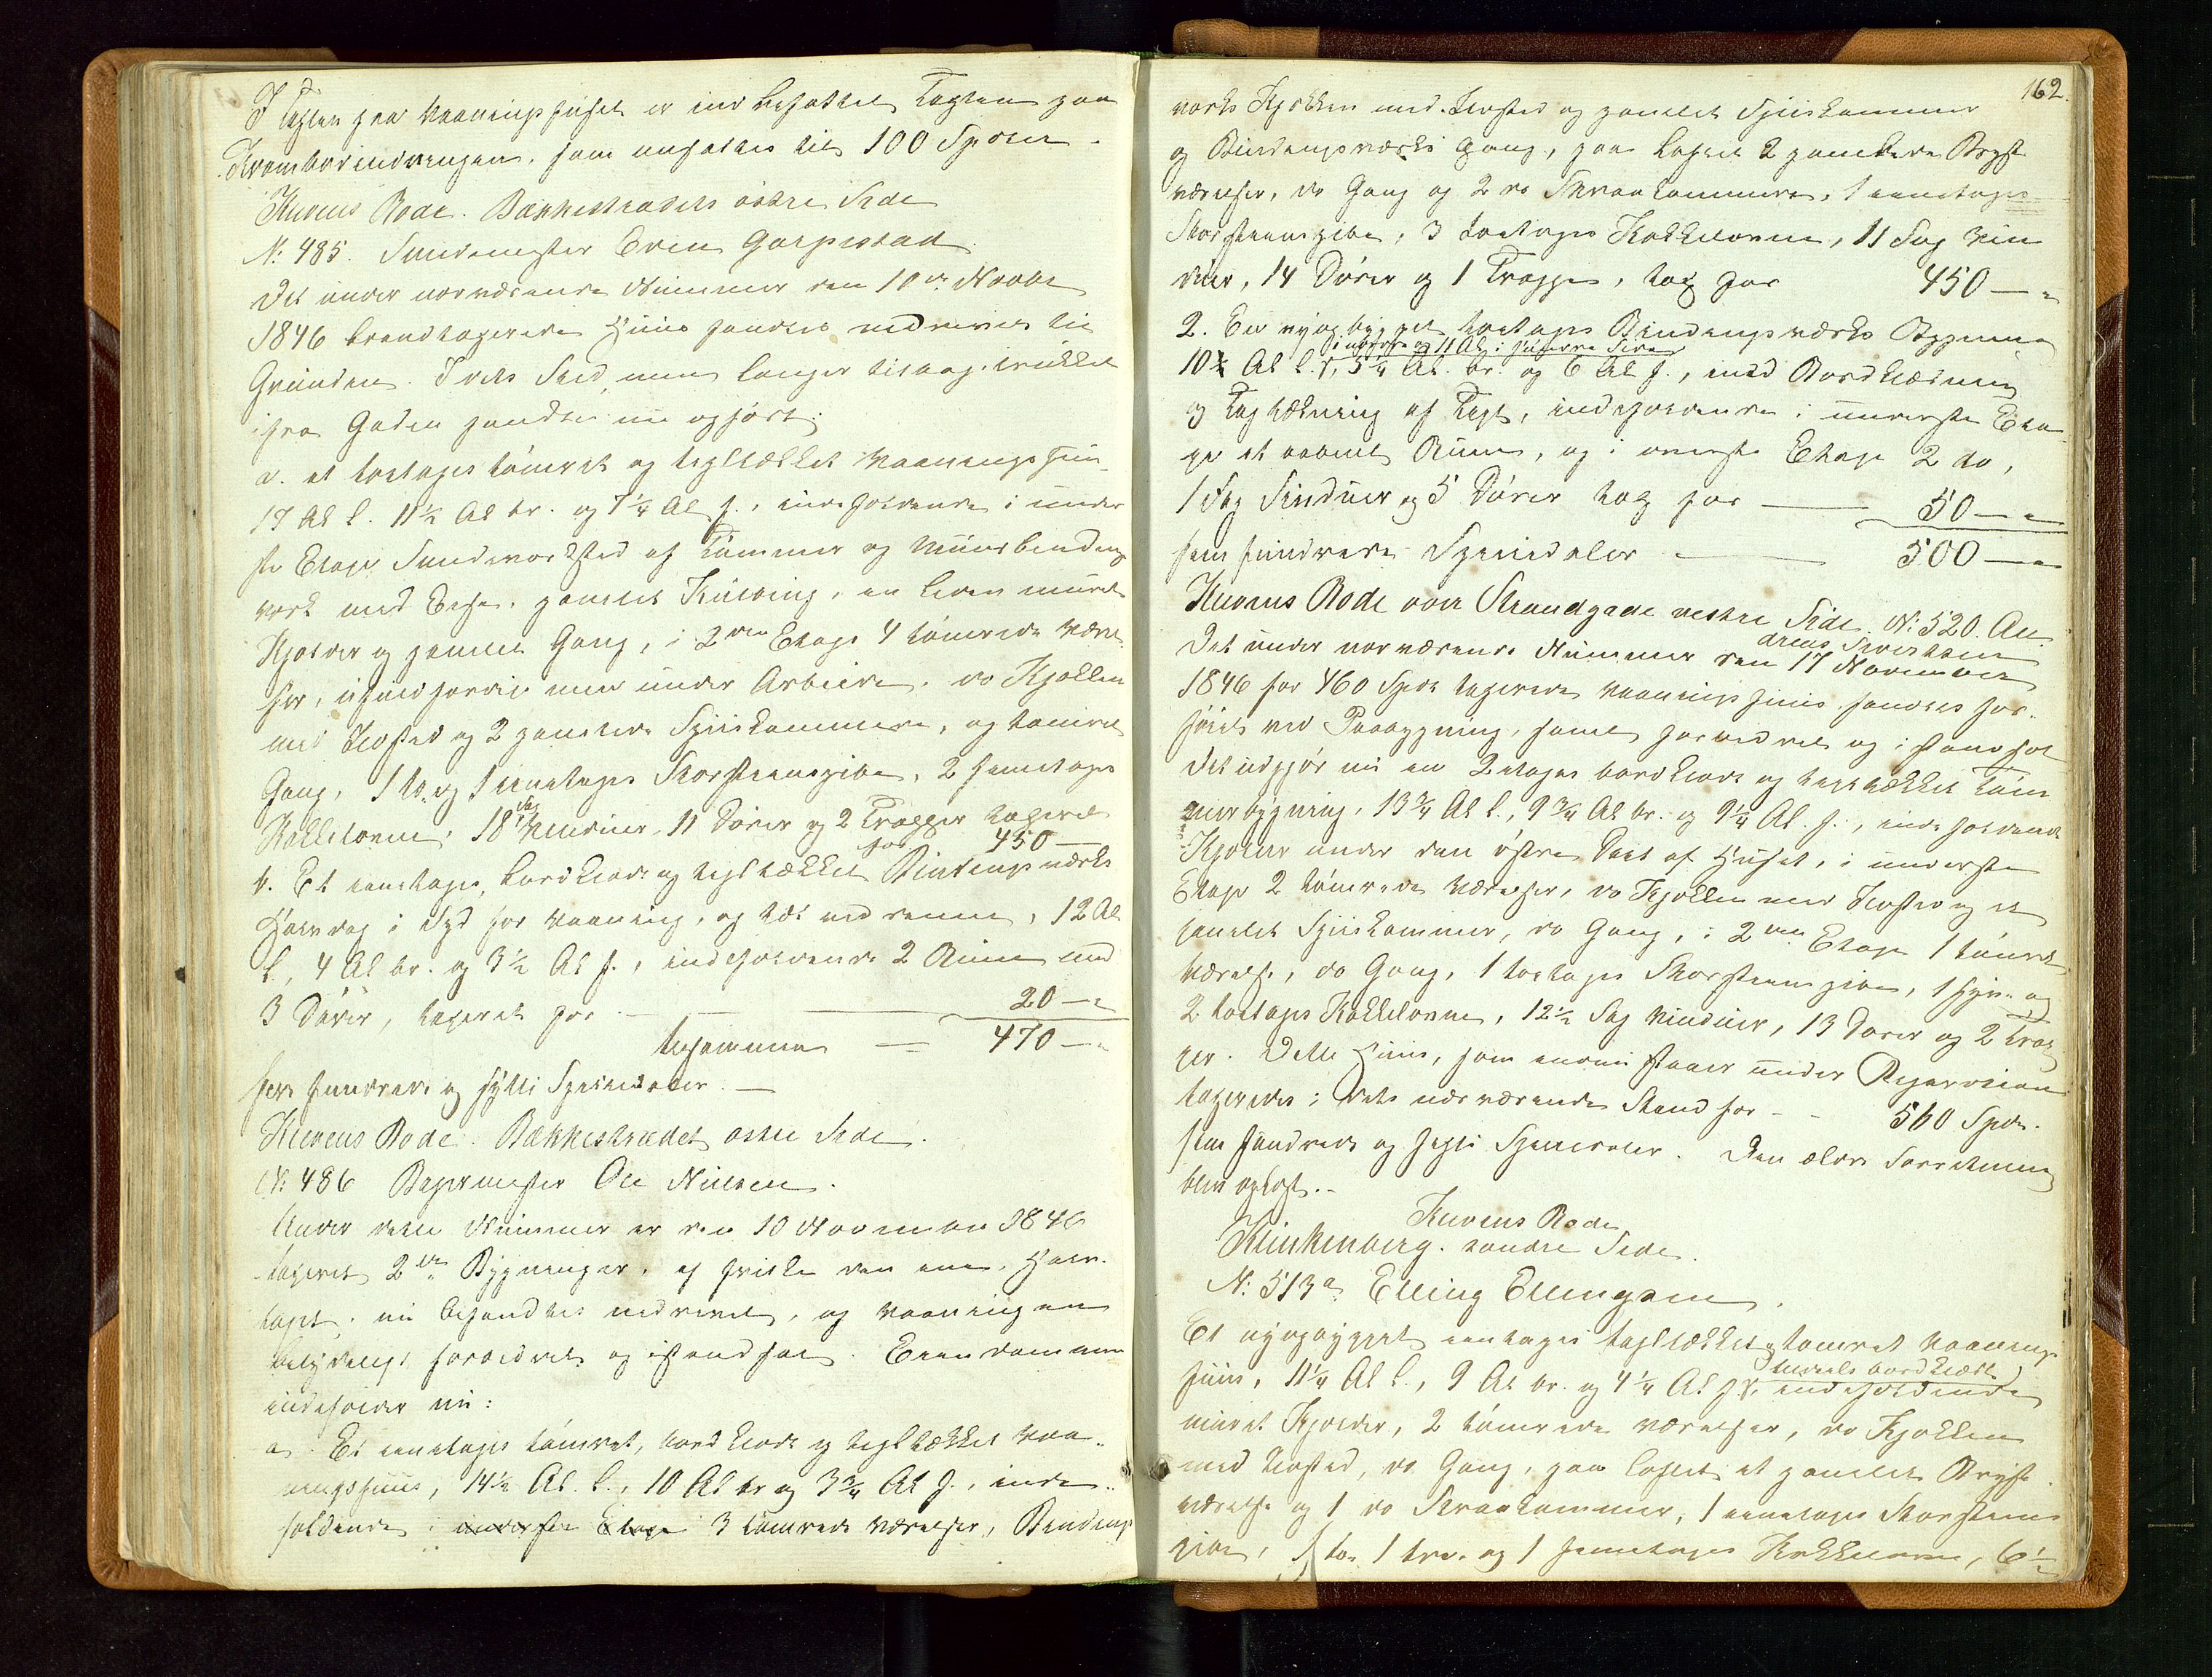 I Taxten paa Vaaningshuset er indbefattet Taxten paa
Krambodindretningen, som ansattes til 100 Spdlr.
Kuvens Rode. Bakkestrædets østre Side
N: 485. Smedemester Even Garpestad.
Det under nærværende Nummer den 10de Novbr
1846 brandtaxerede Huus fandtes nedrevet til
Grunden. I dets Sted, men længer tilbagerukket
fra Gaden fandtes nu opført:
a. et toetages tømret og tegltækket Vaaningshuus
17 Al l. 11½ Al br. og 7¼ Al h., indeholdende i under
ste Etage Smedeværksted af Tømmer og Muurbindings
værk med Esse, panelet Kulbing, en liden muret
Kjelder og panelet Gang, i 2den Etage 4 tømrede Værel
ser, ufuldfærdige men under Arbeide, do Kjøkken
med Ildsted og 2 panelede Spiiskammere, og tømret
Gang, 1 to og 1 eenetages Skorsteenspibe, 2 fleretages
Kakkelovne, 18 Fag Vinduer, 11 Dører og 2 Trapper taxeret
for 450 —
b. Et eenetages, bordklædt og tegltækket Bindingsværks
Halvtag i Syd for Vaaning, og tæt ved samme, 12 Al
l., 4 Al br. og 3½ Al h., indeholdende 2 Rum med
3 Dører, taxeret for — 20 —
tilsammen — 470 —
fire hundrede og sytti Speciedaler. —
Kuvens Rode. Bakkestrædet østre Side.
N: 486 Bagermester Ole Nielsen.
Under dette Nummer er den 10 November 1846
taxeret 2de Bygninger, af hvilke den ene, Halv-
taget, nu befandtes nedrevet, og Vaaningen
betydeligt forbedret og istandsat. Eiendommen
indeholder nu:
a. Et eenetages tømret, bordklædt og tegltækket Vaa-
ningshuus, 14½ Al. l., 10 Al br og 3¾ Al h., inde-
holdende i underste Etage 3 tømrede Værelser, Bindings
162.
værks Kjøkken med Ildsted og panelet Spiiskammer
og Bindingsværks Gang, paa Loftet 2 panelede Bryst
værelser, do Gang og 2 do Skraakammere, 1 eenetages
Skorsteenspibe, 3 toetages Kakkelovne, 11 Fag Vin
duer, 14 Dører og 1 Trappe, tax for 450 —
2. En nyopbygget toetages Bindingsværks Bygning
i nordre og 11 Al i søndre Side
10¾ Al l., 5¼ Al. br. og 6 Al h., med Bordklædning
og Tagtækning af Tegl, indeholdende i underste Eta
ge et aabent Rum, og i øverste Etage 2 do,
1 Fag Vinduer og 5 Dører tax for — 50 —
fem hundrede Speciedaler — 500 —
Kuvens Rode øvre Strandgade vestre Side. N: 520. An
dreas Sivertsen
Det under nærværende Nummer den 17 November
1846 for 460 Spdr taxerede Vaaningshuus fandtes for-
høiet ved Paabygning, samt forbedret og i stand sat
Det udgjør nu en 2etages bordklædt og tegltækket Tøm
merbygning, 13¾ Al l., 9¾ Al br. og 9¼ Al. h., indeholdende
Kjelder under den østre Deel af Huset, i underste
Etage 2 tømrede Værelser, do Kjøkken med Ildsted og et
panelet Spiiskammer, do Gang, i 2den Etage 1 tømret
Værelse, do Gang, 1 toetages Skorsteenspibe, 1 fyr- og
2 toetages Kakkelovne, 12½ Fag Vinduer, 13 Dører og 2 Trap
per. Dette Huus, som endnu staaer under Reparation
taxeredes i dets nærværende Stand for - - 560 Spdr.
fem hundrede og sexti Speciedaler. Den ældre Forretning
blev ophævet.
Kuvens Rode
Klinkenberg. søndre Side.
N: 513a. Elling Ellingsen.
Et nyopbygget eenetages tegltækket og tømret Vaanings
huus, 11¼ Al l., 9 Al br. og 4¼ Al h., indeholdende
tildeels bordklædt
muret Kjelder, 2 tømrede Værelser, do Kjøkken
med Ildsted, do Gang, paa Loftet et panelet Bryst
værelse og 1 do Skraakammer, 1 eenetages Skorsteens
pibe, 1 to- 1 tre- og 1 fleretages Kakkelovn, 6½